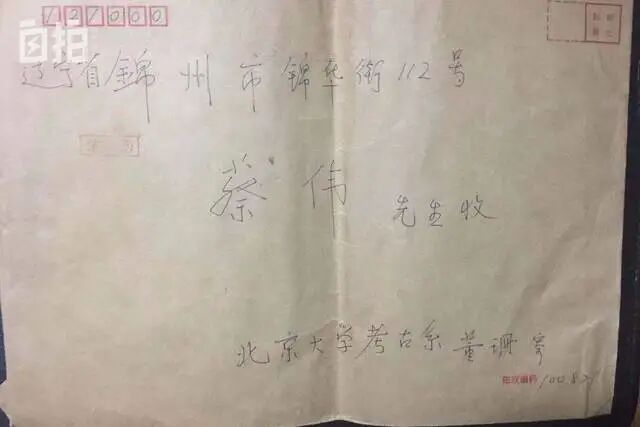 121000
自拍
辽宁省錦州市錦华街112号
蔡伟 先生收
北京大学考古系董珊寄
邮政编码 100871